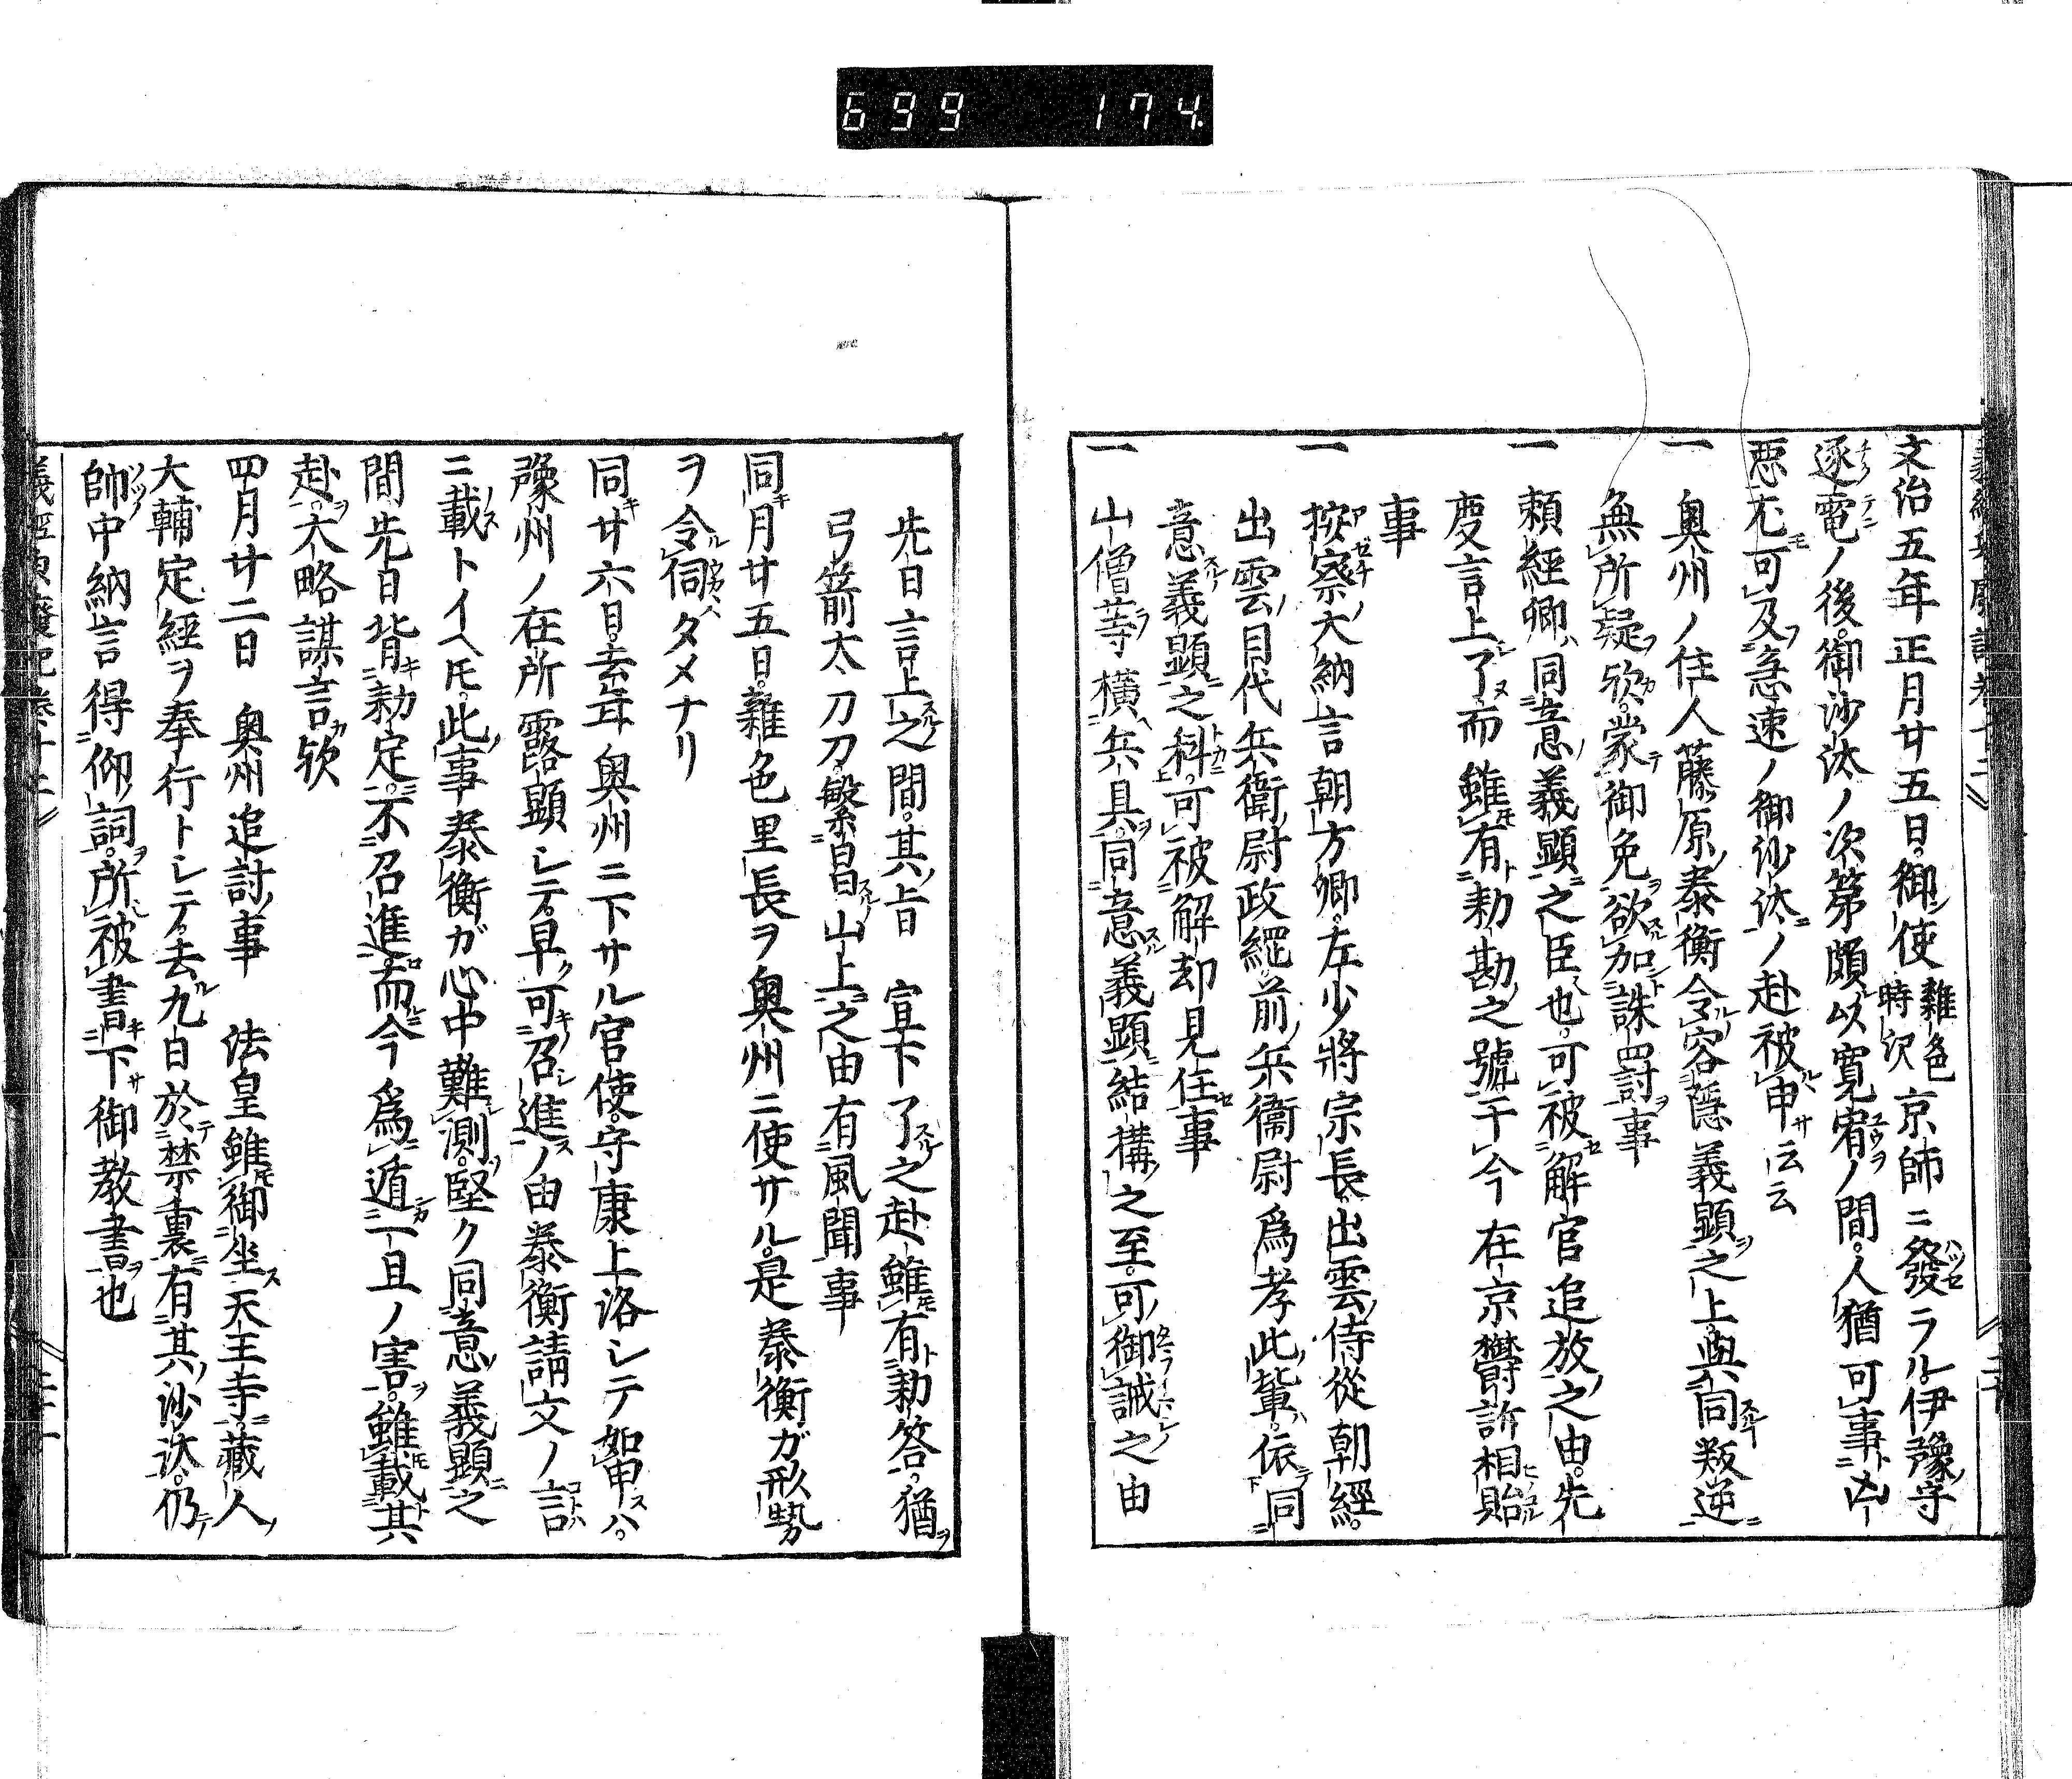 699 174
文治五年正月廿五日。御使雜色時沢京師ニ發ラル伊豫守
逐電ノ後。御沙汰ノ次第頗以寛宥ノ間。人猶可事凶
悪尤可及急速ノ御沙汰ノ赴被申云云
一 奥州ノ住人藤原泰衡令容隠義顕之上。與同叛逆
無所疑欤。蒙御免欲加誅罰事
一 頼經卿。同意義顕之臣也。可被解官追放之由。先
慶言上了。而雖有勅勘之號于今在京欝訴相貽
事
一 按察大納言朝方卿。左少將宗長。出雲侍從朝經。
出雲目代兵衞尉政綱。前兵衞尉爲孝此輩。依同
意義顕之科。可被解却見任事
一 山僧等横兵具。同意義顕結構之至。可御誡之由
先日言上之間。其旨 宣下了之赴雖有勅答。猶
弓箭太刀刀。繁昌山上之由有風聞事
同月廿五日。雜色里長ヲ奥州ニ使サル。是泰衡ガ形勢
ヲ令伺タメナリ
同廿六日。去年奥州ニ下サル官使。守康上洛シテ如申ハ。
豫州ノ在所露顕シテ。早可召進ノ由泰衡請文ノ言
ニ載トイヘ𪜈。此事泰衡ガ心中難測。堅ク同意義顕之
間先日背勅定。不召進。而今爲遁一旦ノ害。雖載其
赴。大略謀言欤
四月廿二日 奥州追討事 法皇雖御坐天王寺。藏人
大輔定經ヲ奉行トシテ。去九日於禁裏有其沙汰。仍
帥中納言得仰詞。所被書下御教書也